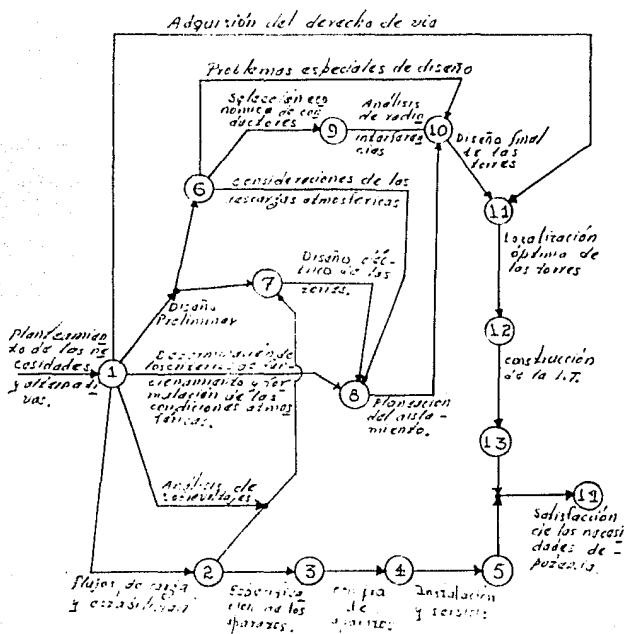 Adquisición del derecho de via
Problemas especiales de diseño
Selección eco
nómica de con
ductores
9
Análisis
de radio
interferen
cias
10
Diseño final
de las
torres
6
Consideraciones de las
descargas atmosféricas
11
Localización
óptima de
las torres
7
Diseño eléc-
trico de las
torres.
Diseño
Preliminar
Planteamien
to de las ne
cesidades
y alternati
vas.
1
Determinación de
los criterios de fun
cionamiento y for
mulación de las
condiciones atmos
féricas.
8
Planeación
del aisla-
miento.
12
construcción
de la L.T.
13
Análisis de
14
Satisfacción
de las necesi
dades de
potencia.
2
3
4
5
Flujos de carga
y estabilidad
Especifica
ción de los
aparatos.
compra
de
aparatos
Instalación
y servicio